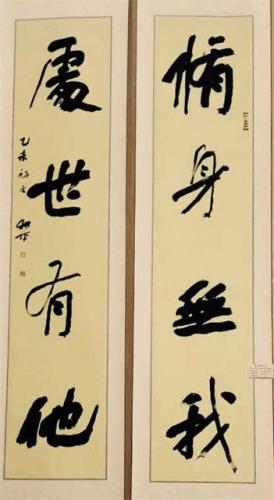 脩身無我
處世有他
乙未